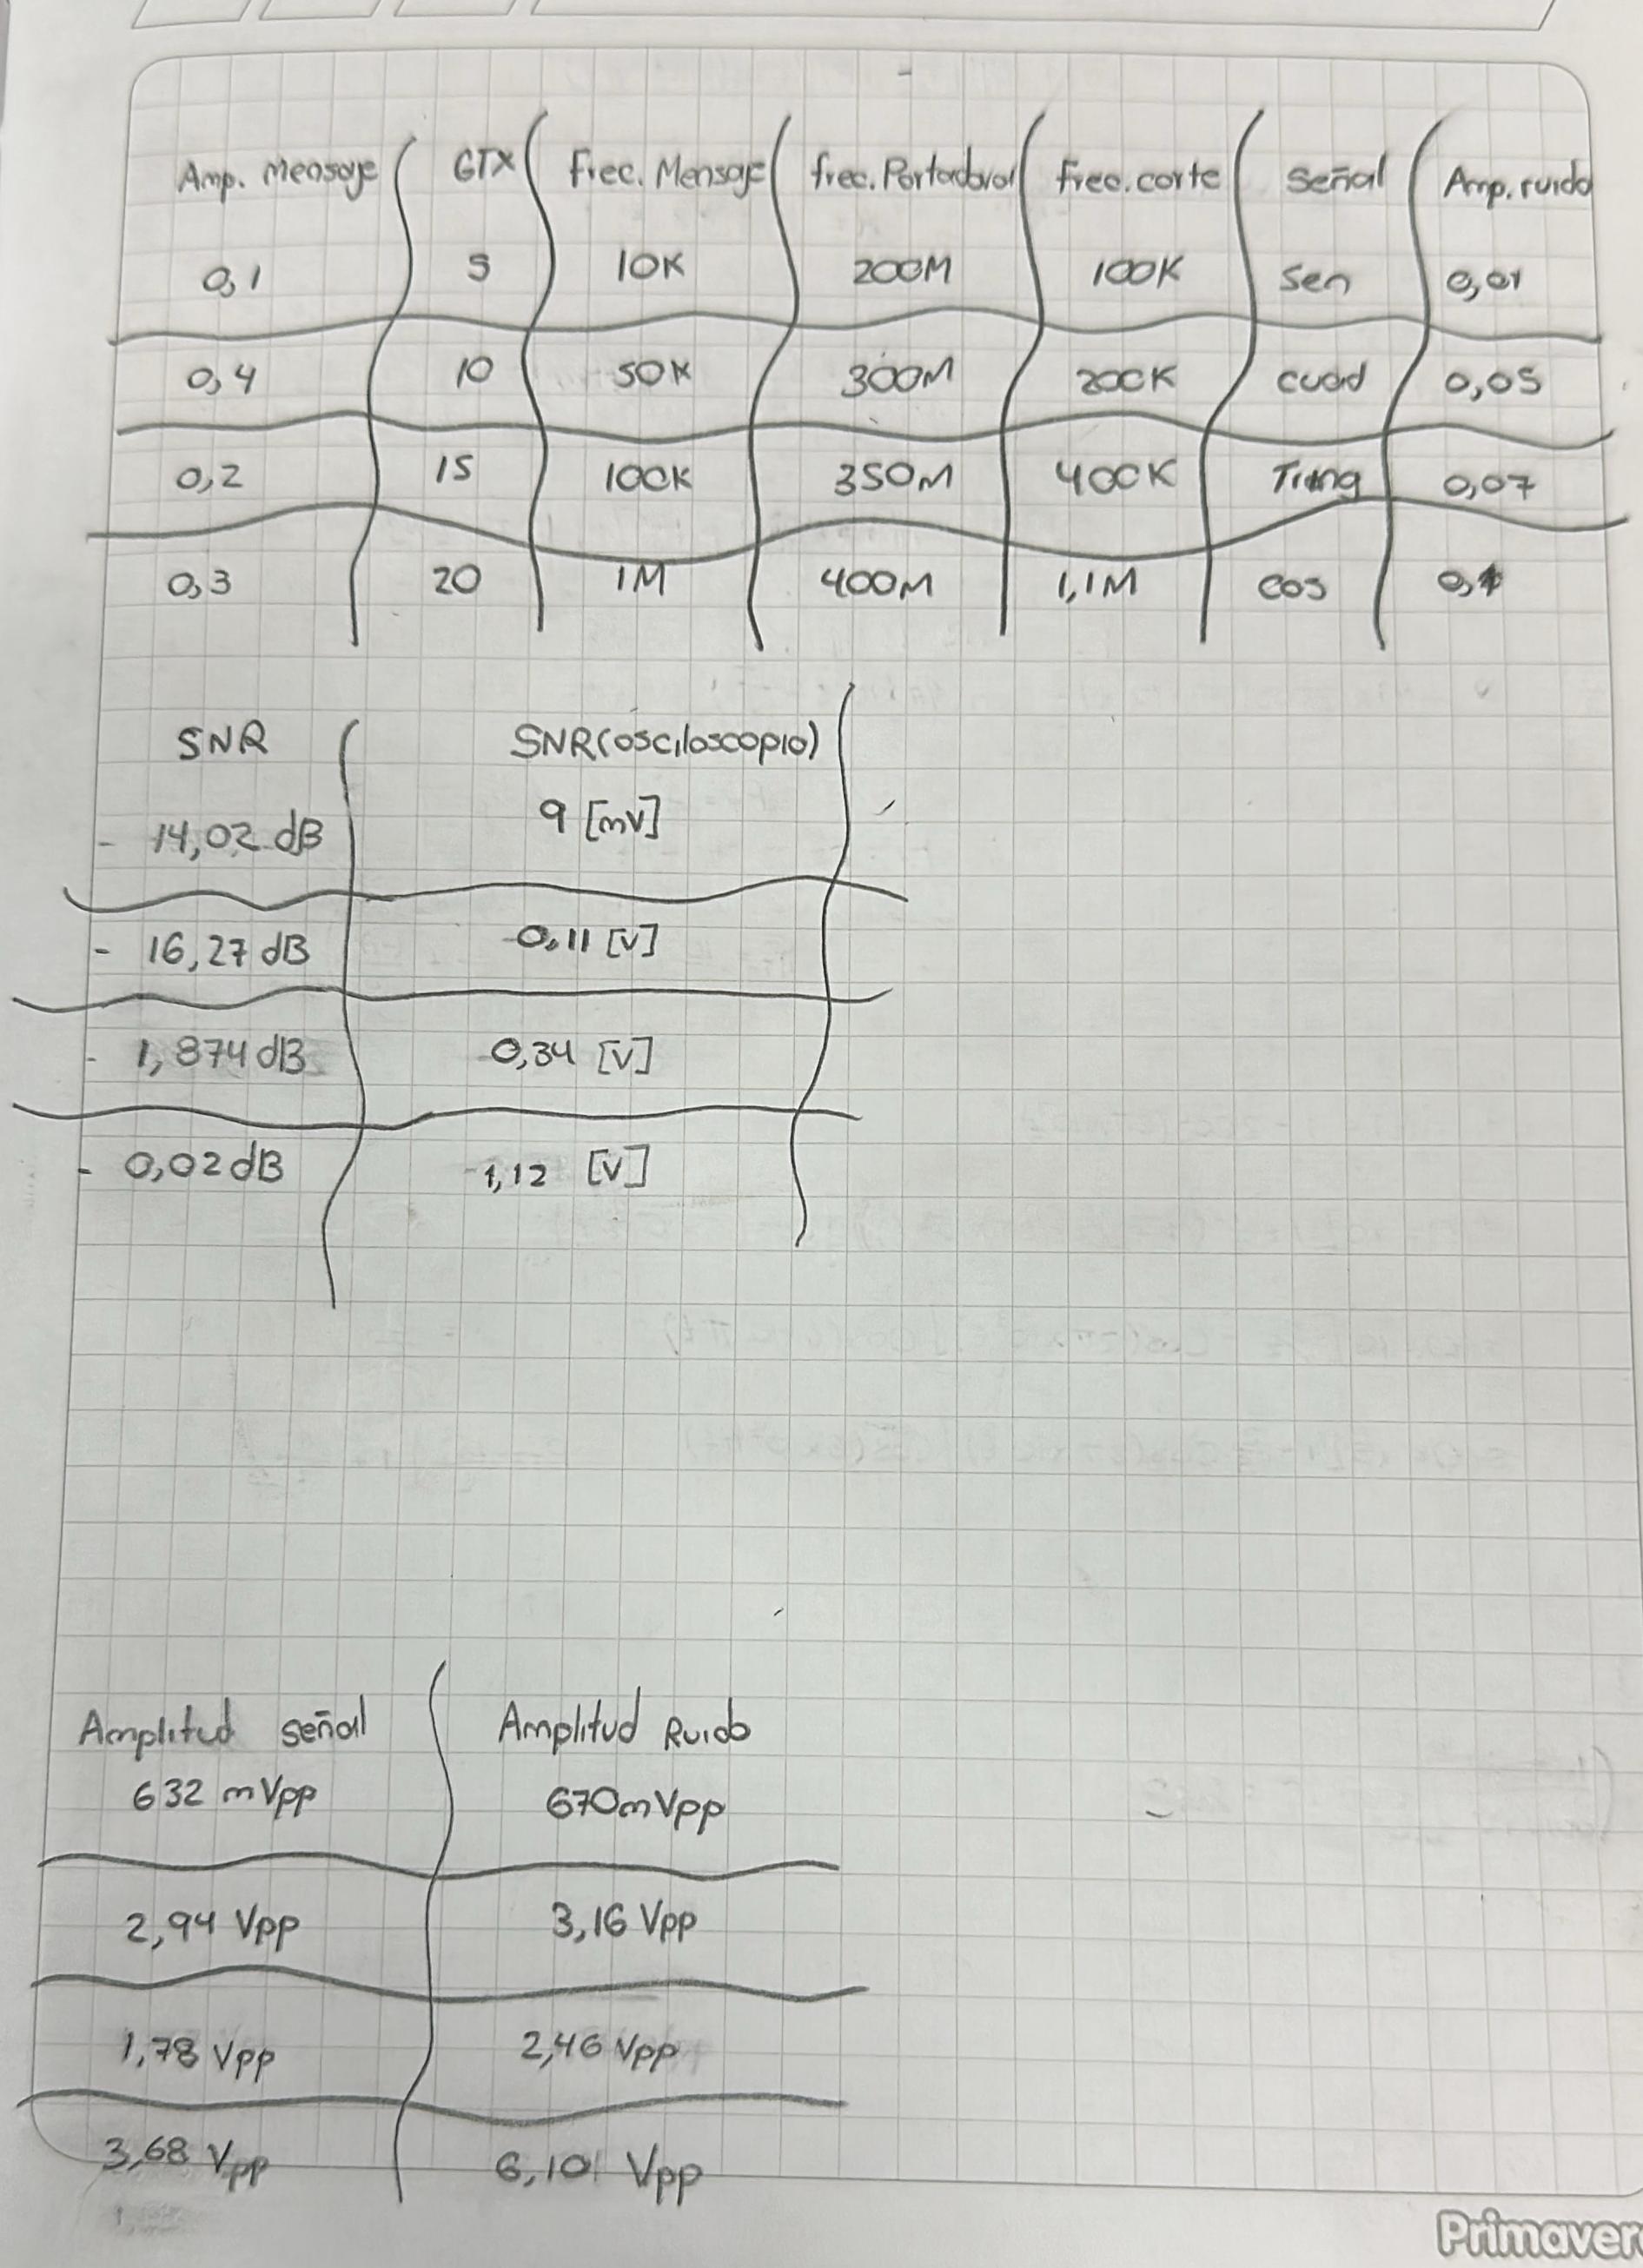 Amp. Mensaje GTX Frec. Mensaje frec. Portadora Frec. corte Señal Amp. ruido
0,1 5 10K 200M 100K Sen 0,01
0,4 10 50K 300M 200K cuad 0,05
0,2 15 100K 350M 400K Triang 0,07
0,3 20 1M 400M 1,1M cos 0,1
SNR SNR(osciloscopio)
- 14,02 dB 9 [mV]
- 16,27 dB 0,11 [V]
- 1,874 dB 0,34 [V]
- 0,02 dB 1,12 [V]
Amplitud señal Amplitud Ruido
632 mVpp 670mVpp
2,94 Vpp 3,16 Vpp
1,78 Vpp 2,46 Vpp
3,68 Vpp 6,10 Vpp